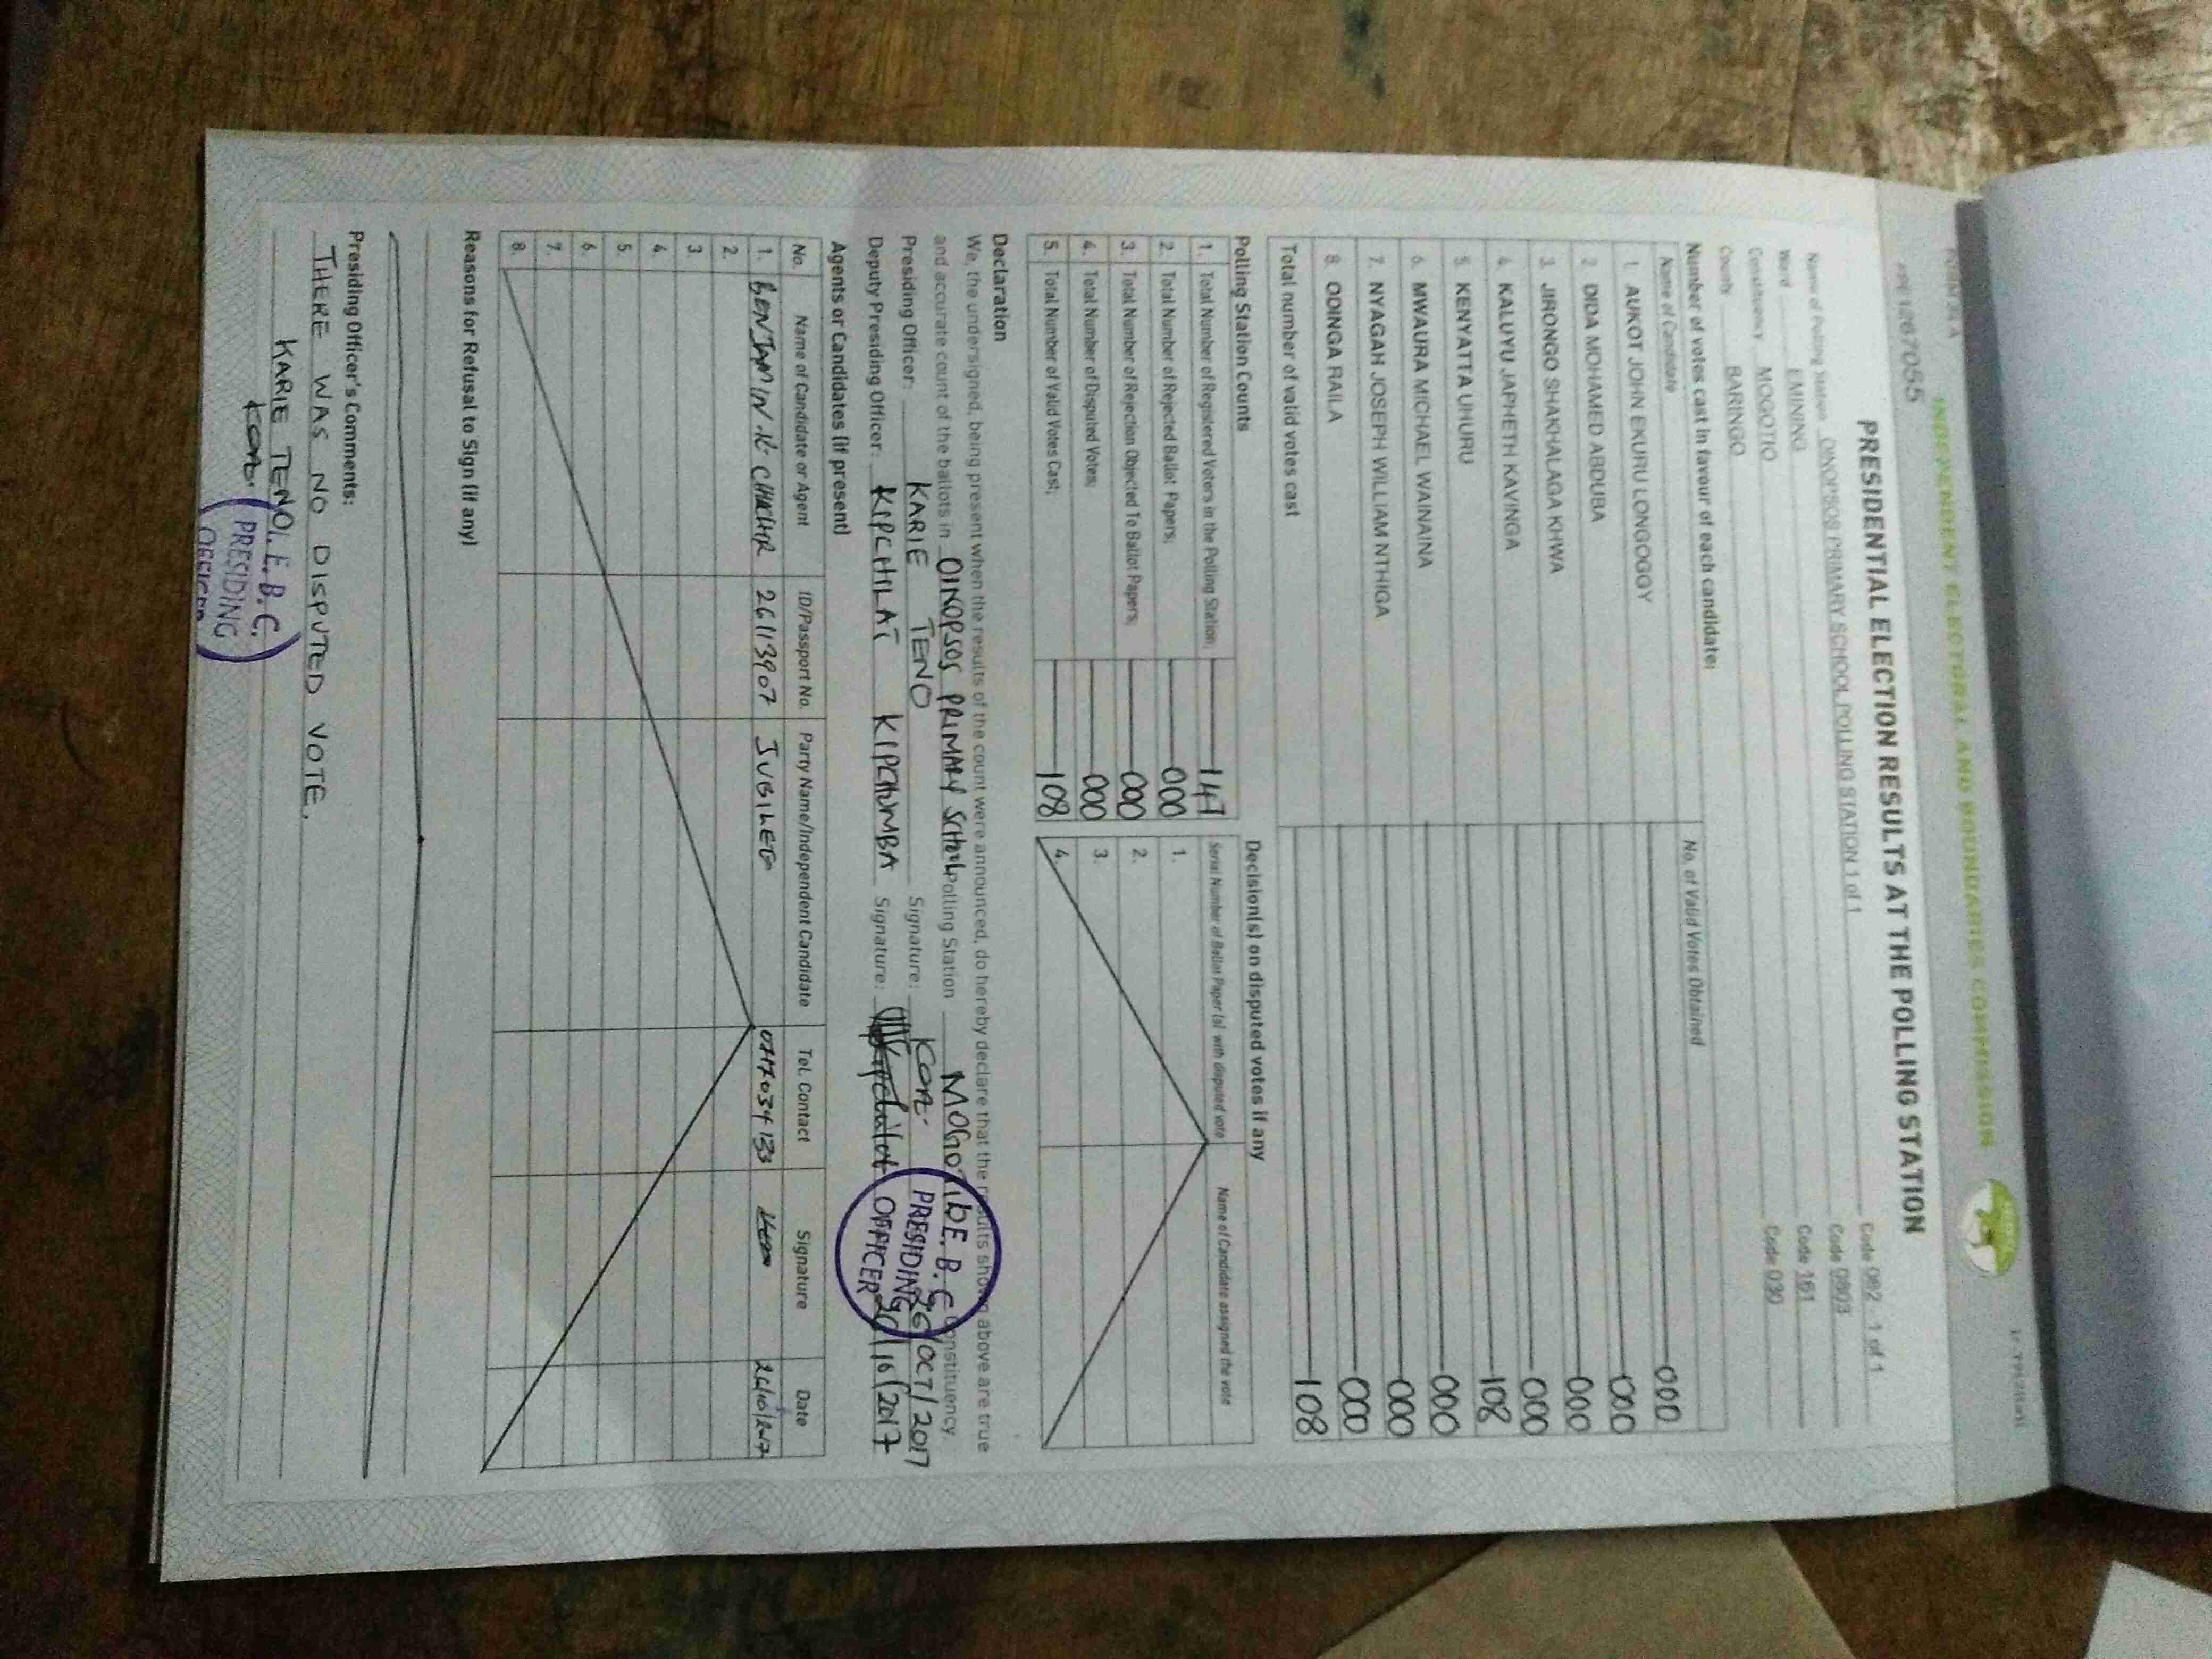 FORM 34A
INDEPENDENT ELECTORAL AND BOUNDARIES COMMISSION
PRESIDENTIAL ELECTION RESULTS AT THE POLLING STATION
Name of Polling Station OINOPSOS PRIMARY SCHOOL POLLING STATION 1 of 1 Code 082 - 1 of 1
Ward EMINING Code 0803
Constituency MOGOTIO Code 161
County BARINGO Code 030
Number of votes cast in favour of each candidate:
Name of Candidate No. of Valid Votes Obtained
1. AUKOT JOHN EKURU LONGOGGY 000
2. DIDA MOHAMED ABDUBA 000
3. JIRONGO SHAKHALAGA KHWA 000
4. KALUYU JAPHETH KAVINGA 000
5. KENYATTA UHURU 108
6. MWAURA MICHAEL WAINAINA 000
7. NYAGAH JOSEPH WILLIAM NTHIGA 000
8. ODINGA RAILA 000
Total number of valid votes cast 108
Polling Station Counts
1. Total Number of Registered Voters in the Polling Station; 147
2. Total Number of Rejected Ballot Papers; 000
3. Total Number of Rejection Objected To Ballot Papers; 000
4. Total Number of Disputed Votes; 000
5. Total Number of Valid Votes Cast; 108
Decision(s) on disputed votes if any
Serial Number of Ballot Paper (s) with disputed vote Name of Candidate assigned the vote
1.
2.
3.
4.
Declaration
We, the undersigned, being present when the results of the count were announced, do hereby declare that the results shown above are true
and accurate count of the ballots in OINOPSOS PRIMARY SCHOOL Polling Station MOGOTIO Constituency.
Presiding Officer: KARIE TENO Signature: 26/OCT/2017
Deputy Presiding Officer: KIPCHILAT KIPCHUMBA Signature: 26/10/2017
I.E.B.C.
PRESIDING
OFFICER
Agents or Candidates (if present)
No. Name of Candidate or Agent ID/Passport No. Party Name/Independent Candidate Tel. Contact Signature Date
1. BENJAMIN K. 26113907 JUBILEE 0717034133 26/10/2017
2.
3.
4.
5.
6.
7.
8.
Reasons for Refusal to Sign (if any)
Presiding Officer's Comments:
THERE WAS NO DISPUTED VOTE.
KARIE TENO
I.E.B.C.
PRESIDING
OFFICER